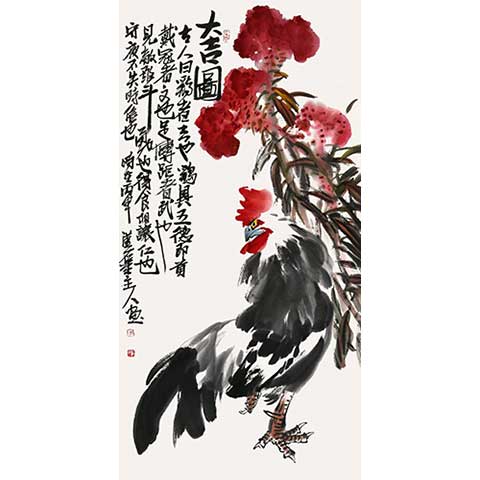 大吉圖
古人曰雞者吉也雞具五德即首
戴冠者文也足縛距者武也
見敵敢斗 食相議仁也
守夜不失時信也 時在丙申 華主人畫